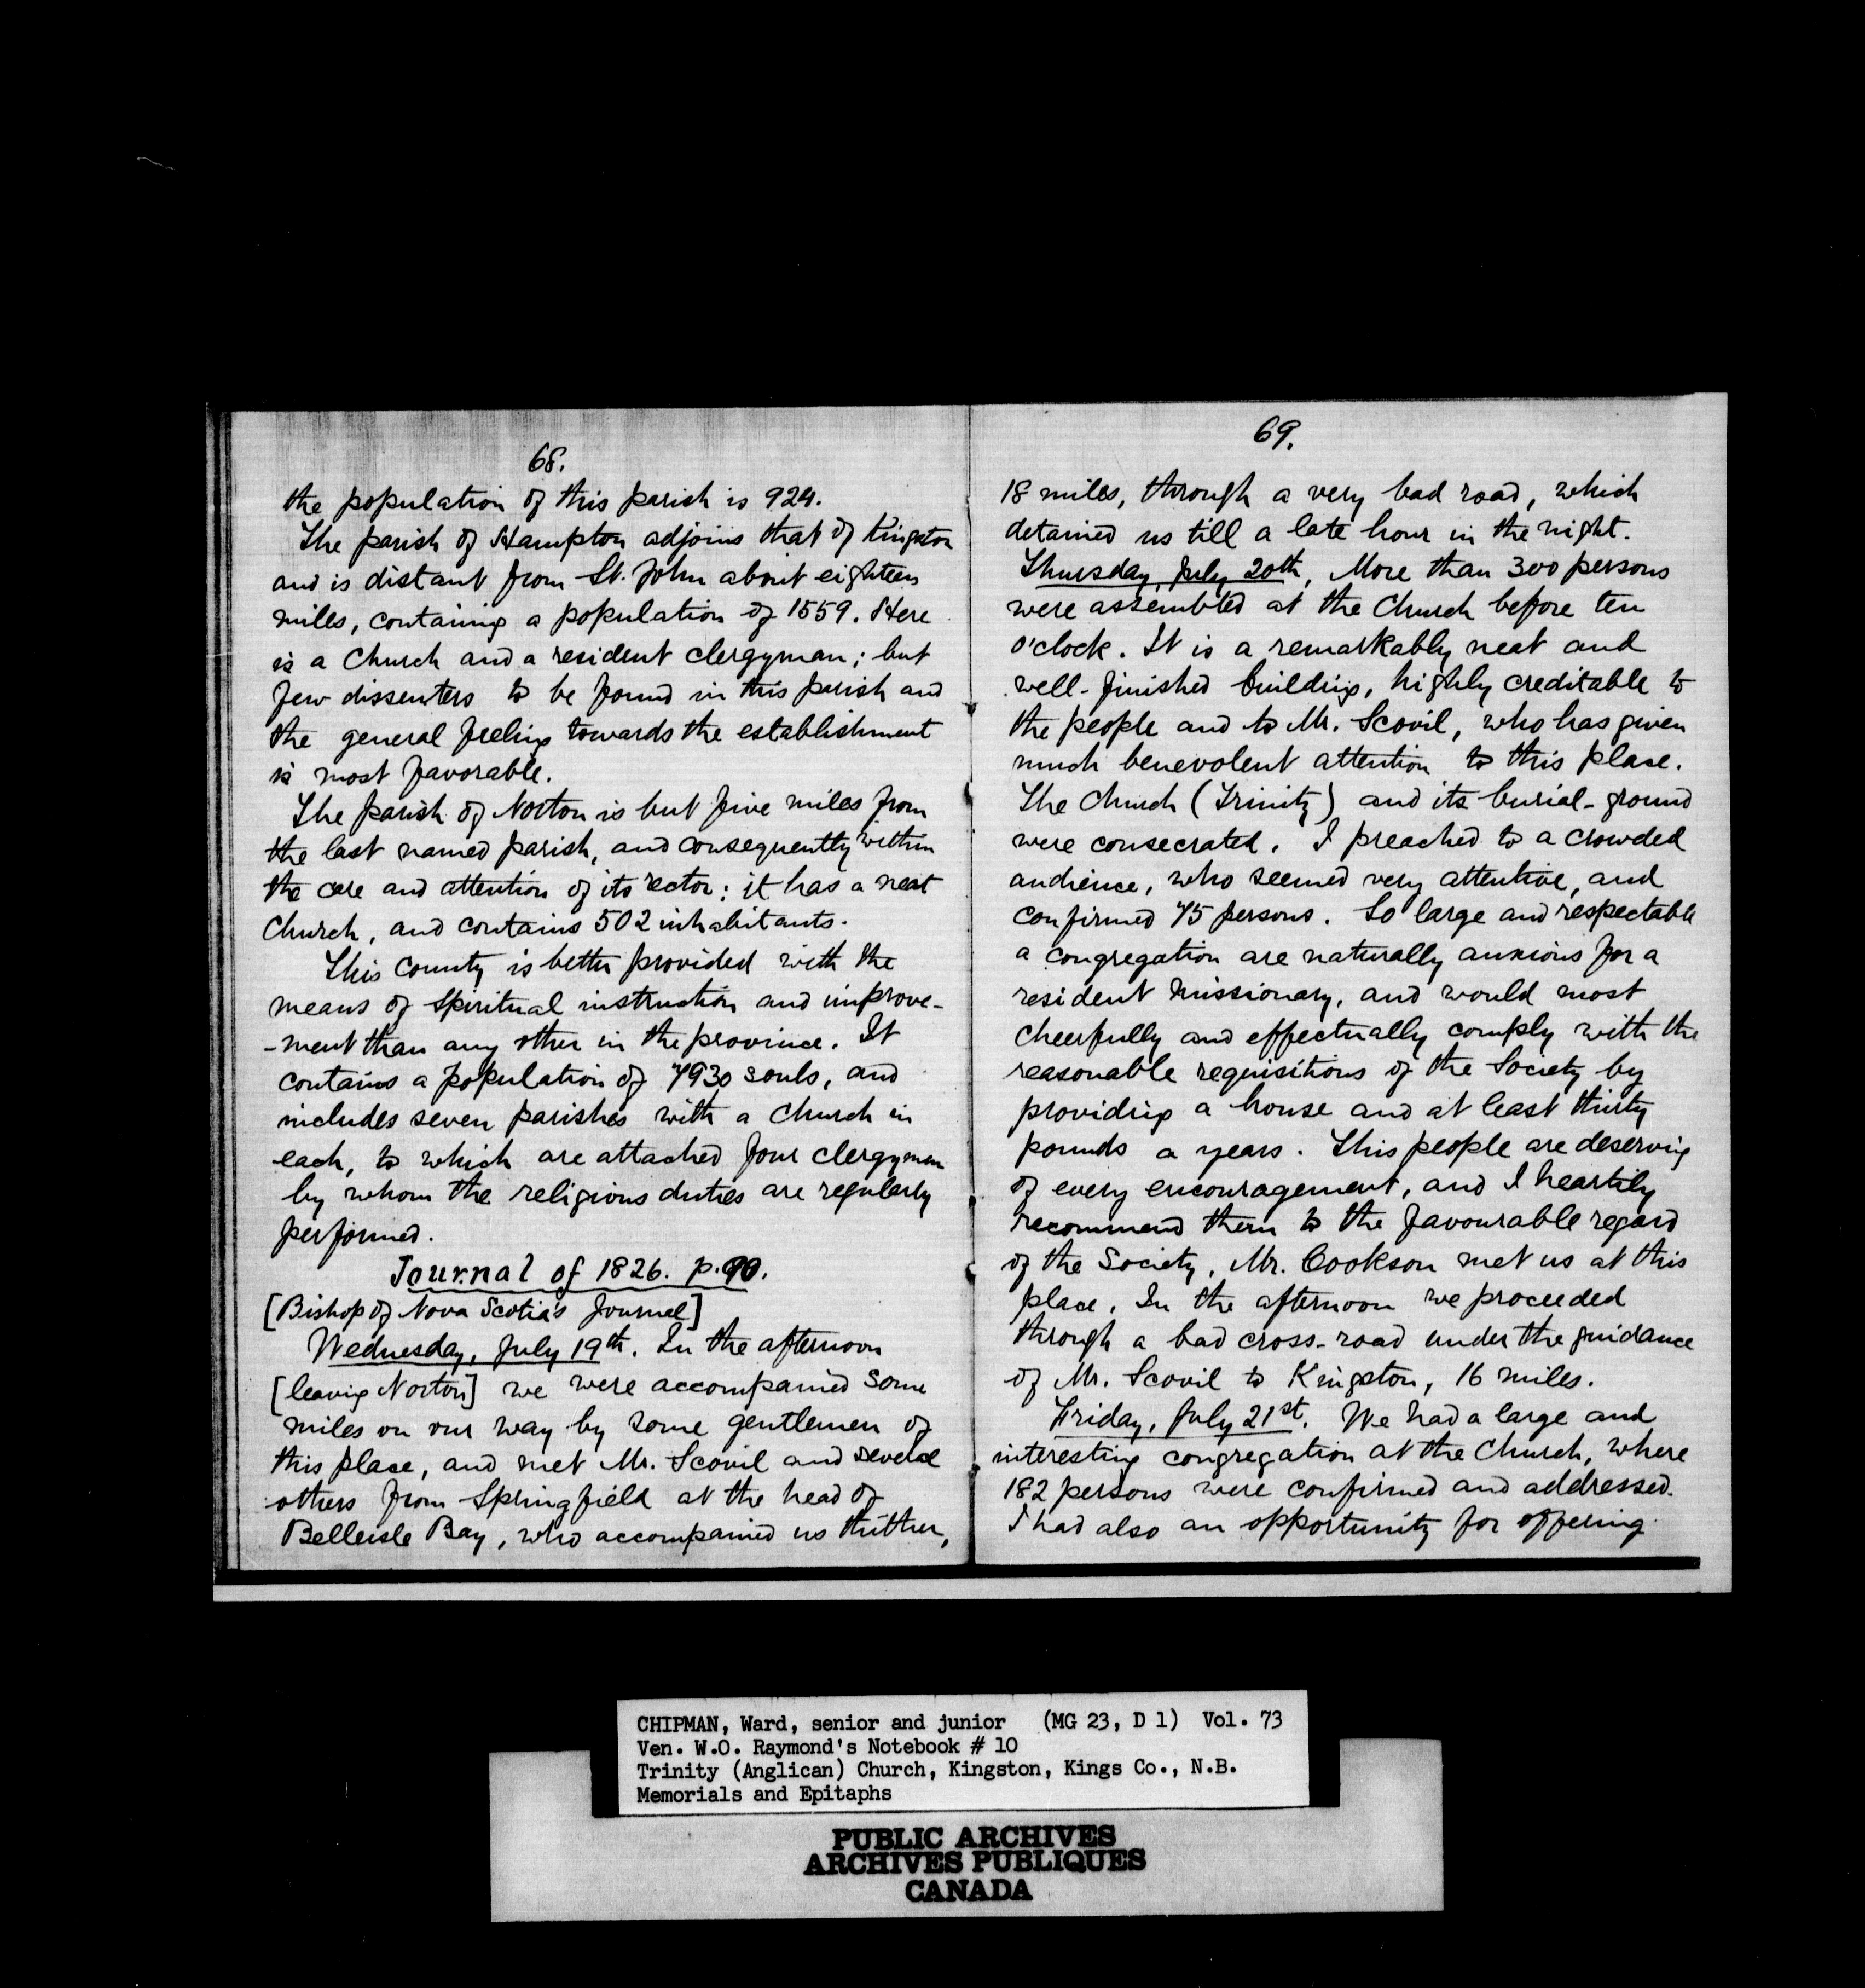 68.
the population of this parish is 924.
The parish of Hampton adjoins that of Kingston
and is distant from St. John about eighteen
miles, containing a population of 1559. Here
is a Church and a resident clergyman; but
few dissenters to be found in this parish and
the general feeling towards the establishment
is most favorable.
The parish of Norton is but five miles from
the last named parish, and consequently within
the care and attention of its rector: it has a neat
Church, and contains 502 inhabitants.
This county is better provided with the
means of spiritual instruction and improve-
-ment than any other in the province. It
contains a population of 7930 souls, and
includes seven parishes with a Church in
each, to which are attached four clergymen
by whom the religious duties are regularly
performed.
Journal of 1826. p. 90.
[Bishop of Nova Scotia's Journal]
Wednesday, July 19th. In the afternoon
[leaving Norton] we were accompanied some
miles on our way by some gentlemen of
this place, and met Mr. Scovil and several
others from Springfield at the head of
Belleisle Bay, who accompanied us thither,
69.
18 miles, through a very bad road, which
detained us till a late hour in the night.
Thursday, July 20th, More than 300 persons
were assembled at the Church before ten
o'clock. It is a remarkably neat and
well-finished building, highly creditable to
the people and to Mr. Scovil, who has given
much benevolent attention to this place.
The Church (Trinity) and its burial-ground
were consecrated. I preached to a crowded
audience, who seemed very attentive, and
confirmed 75 persons. So large and respectable
a congregation are naturally anxious for a
resident Missionary, and would most
cheerfully and effectually comply with the
reasonable requisitions of the Society by
providing a house and at least thirty
pounds a years. This people are deserving
of every encouragement, and I heartily
recommend them to the favourable regard
of the Society. Mr. Cookson met us at this
place. In the afternoon we proceeded
through a bad cross-road under the guidance
of Mr. Scovil to Kingston, 16 miles.
Friday, July 21st. We had a large and
interesting congregation at the Church, where
182 persons were confirmed and addressed.
I had also an opportunity for offering
CHIPMAN, Ward, senior and junior (MG 23, D 1) Vol. 73
Ven. W.O. Raymond's Notebook # 10
Trinity (Anglican) Church, Kingston, Kings Co., N.B.
Memorials and Epitaphs
PUBLIC ARCHIVES
ARCHIVES PUBLIQUES
CANADA